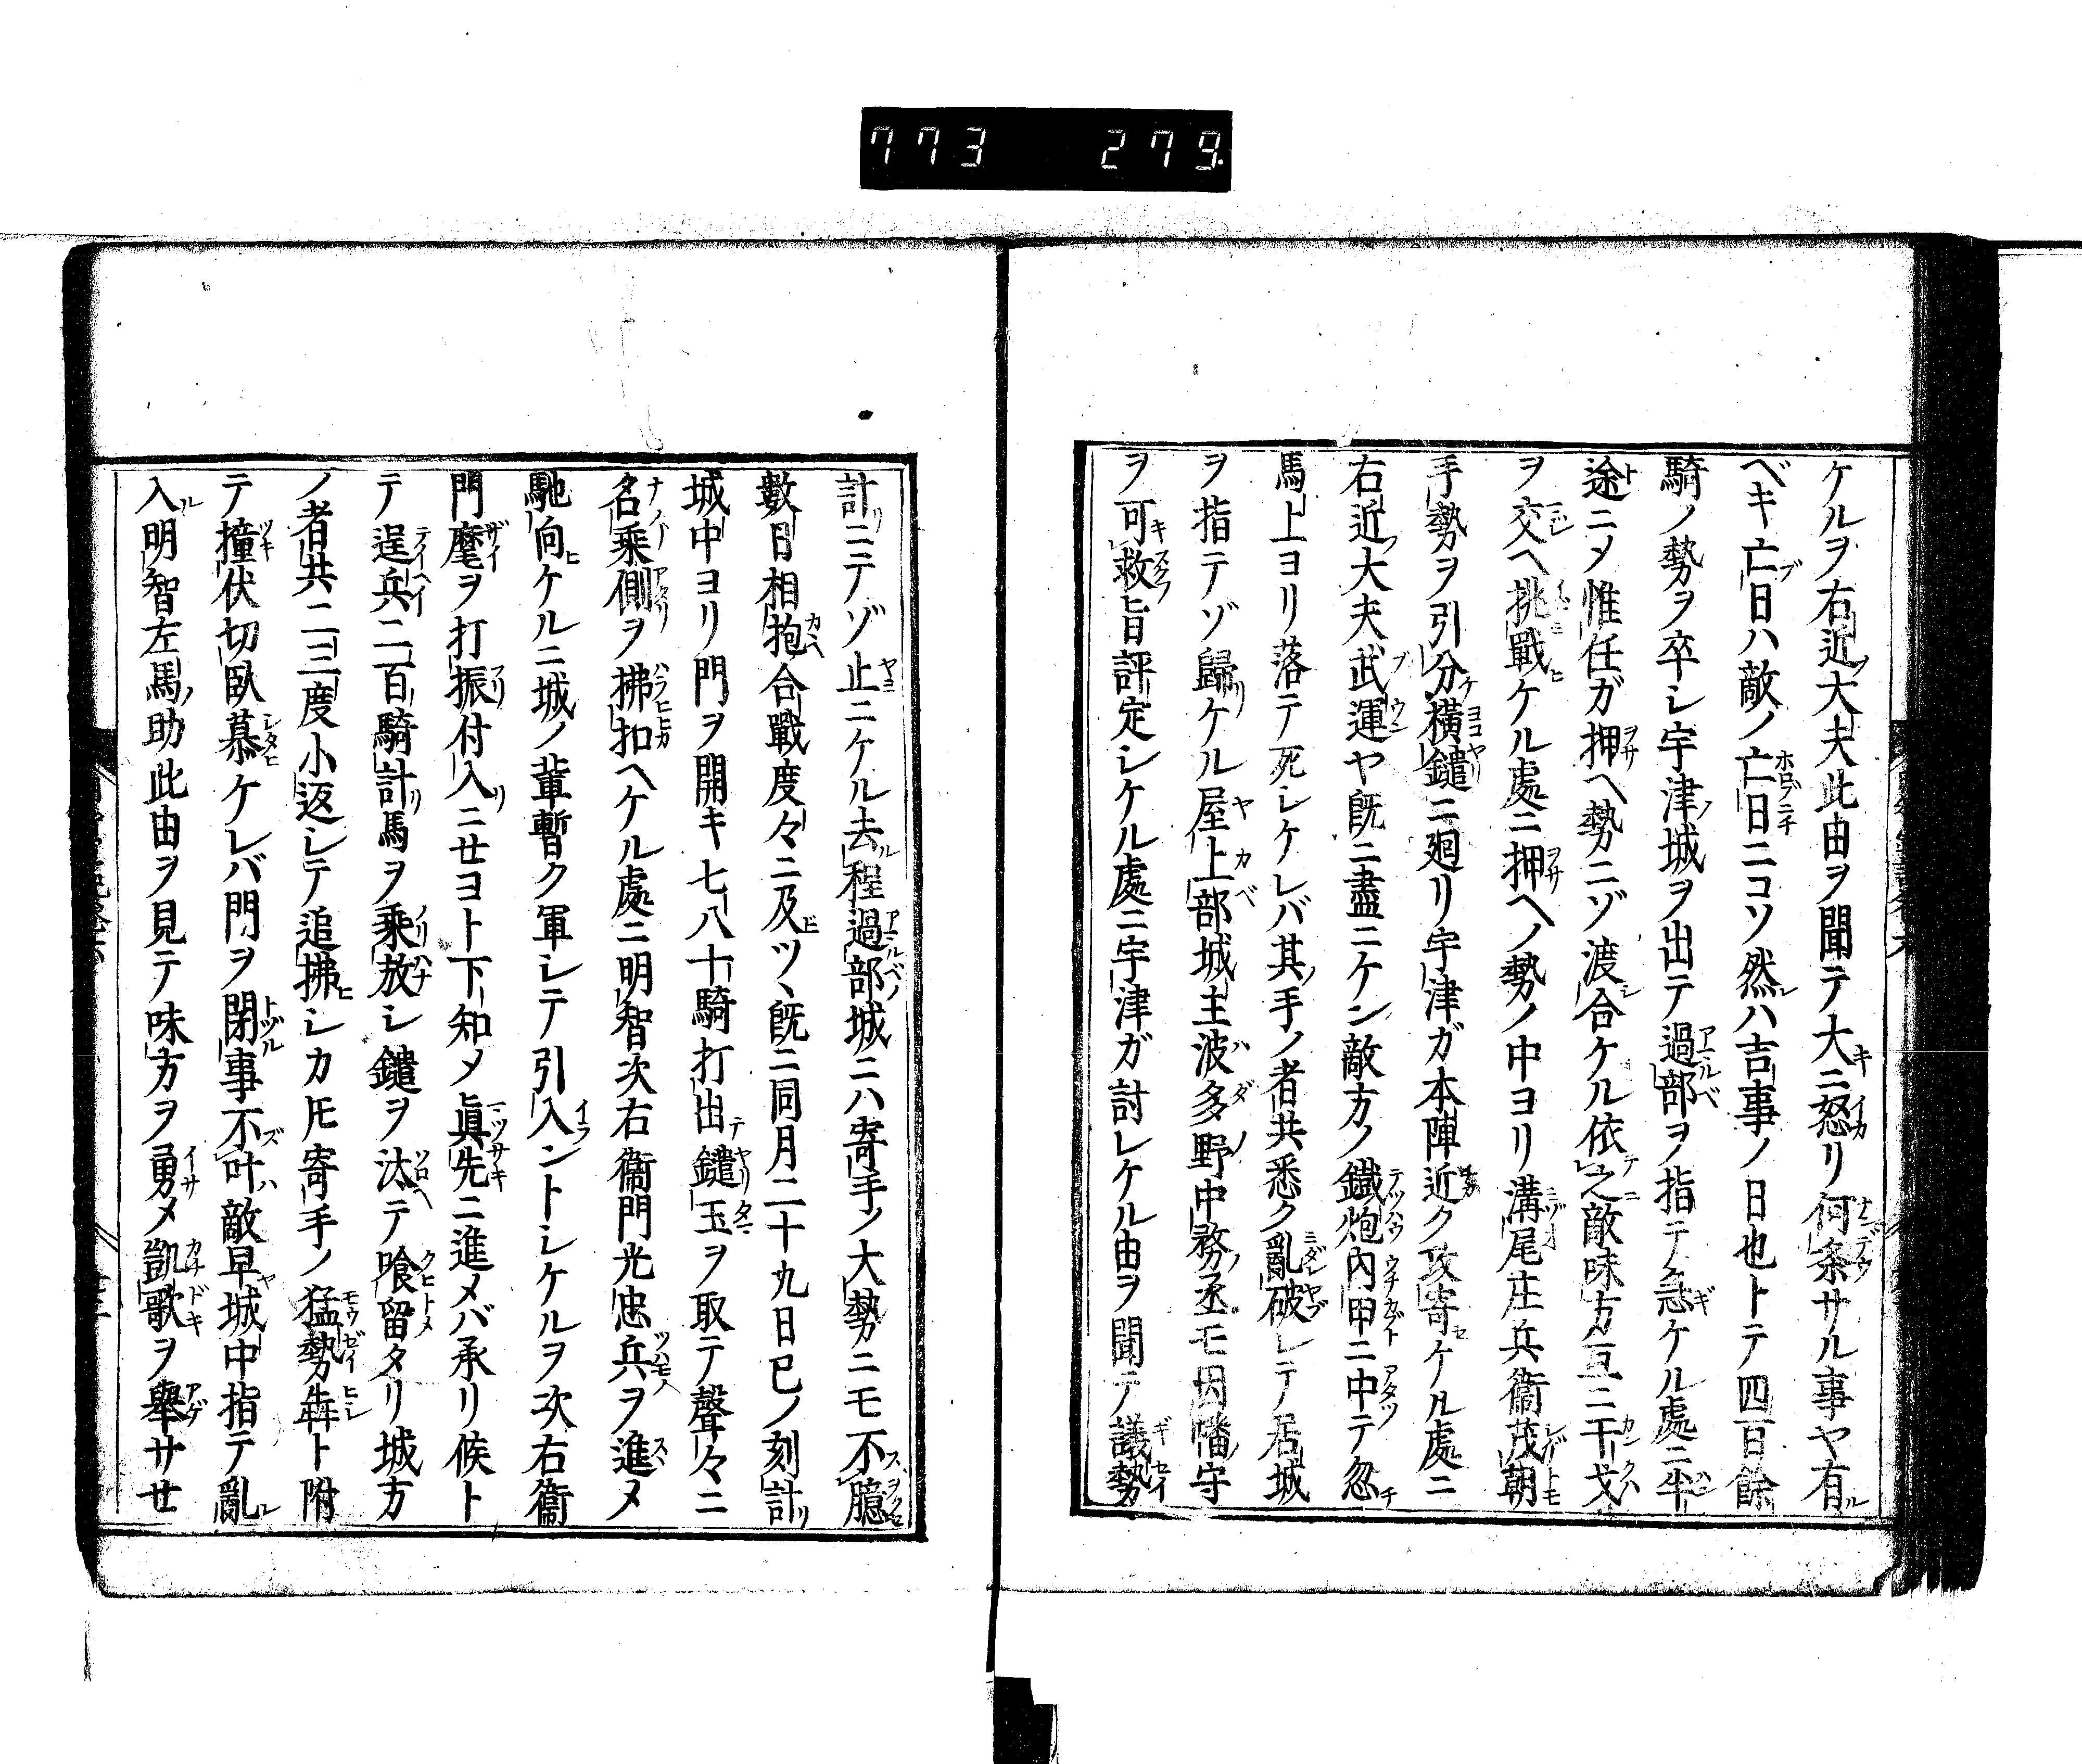 773 279.
ケルヲ右近大夫此由ヲ聞テ大ニ怒リ何条サル事ヤ有
ベキ亡日ハ敵ノ亡日ニコソ然ハ吉事ノ日也トテ四百餘
騎ノ勢ヲ卒シ宇津城ヲ出テ過部ヲ指テ急ケル處ニ半
途ニメ惟任ガ押ヘ勢ニゾ渡合ケル依之敵味方互ニ干戈
ヲ交ヘ挑戰ケル處ニ押ヘノ勢ノ中ヨリ溝尾庄兵衞茂朝
手勢ヲ引分横鑓ニ廻リ宇津ガ本陣近ク攻寄ケル處ニ
右近大夫武運ヤ既ニ盡ニケン敵方ノ鐵炮內甲ニ中テ忽
馬上ヨリ落テ死シケレバ其手ノ者共悉ク亂破レテ居城
ヲ指テゾ歸ケル屋上部城主波多野中務丞モ因幡守
ヲ可救旨評定シケル處ニ宇津ガ討レケル由ヲ聞テ議勢
計ニテゾ止ニケル去程過部城ニハ寄手ノ大勢ニモ不臆
數日相抱合戰度々ニ及ツヽ既ニ同月二十九日巳ノ刻計
城中ヨリ門ヲ開キ七八十騎打出鑓玉ヲ取テ聲々ニ
名乘側ヲ拂扣ヘケル處ニ明智次右衞門光忠兵ヲ進メ
馳向ケルニ城ノ輩暫ク軍シテ引入ントシケルヲ次右衞
門麾ヲ打振付入ニセヨト下知メ眞先ニ進メバ承リ候ト
テ逞兵二百騎計馬ヲ乘放シ鑓ヲ汰テ喰留タリ城方
ノ者共二三度小返シテ追拂シカ𪜈寄手ノ猛勢犇ト附
テ撞伏切臥慕ケレバ門ヲ閉事不叶敵早城中指テ亂
入明智左馬助此由ヲ見テ味方ヲ勇メ凱歌ヲ擧サセ